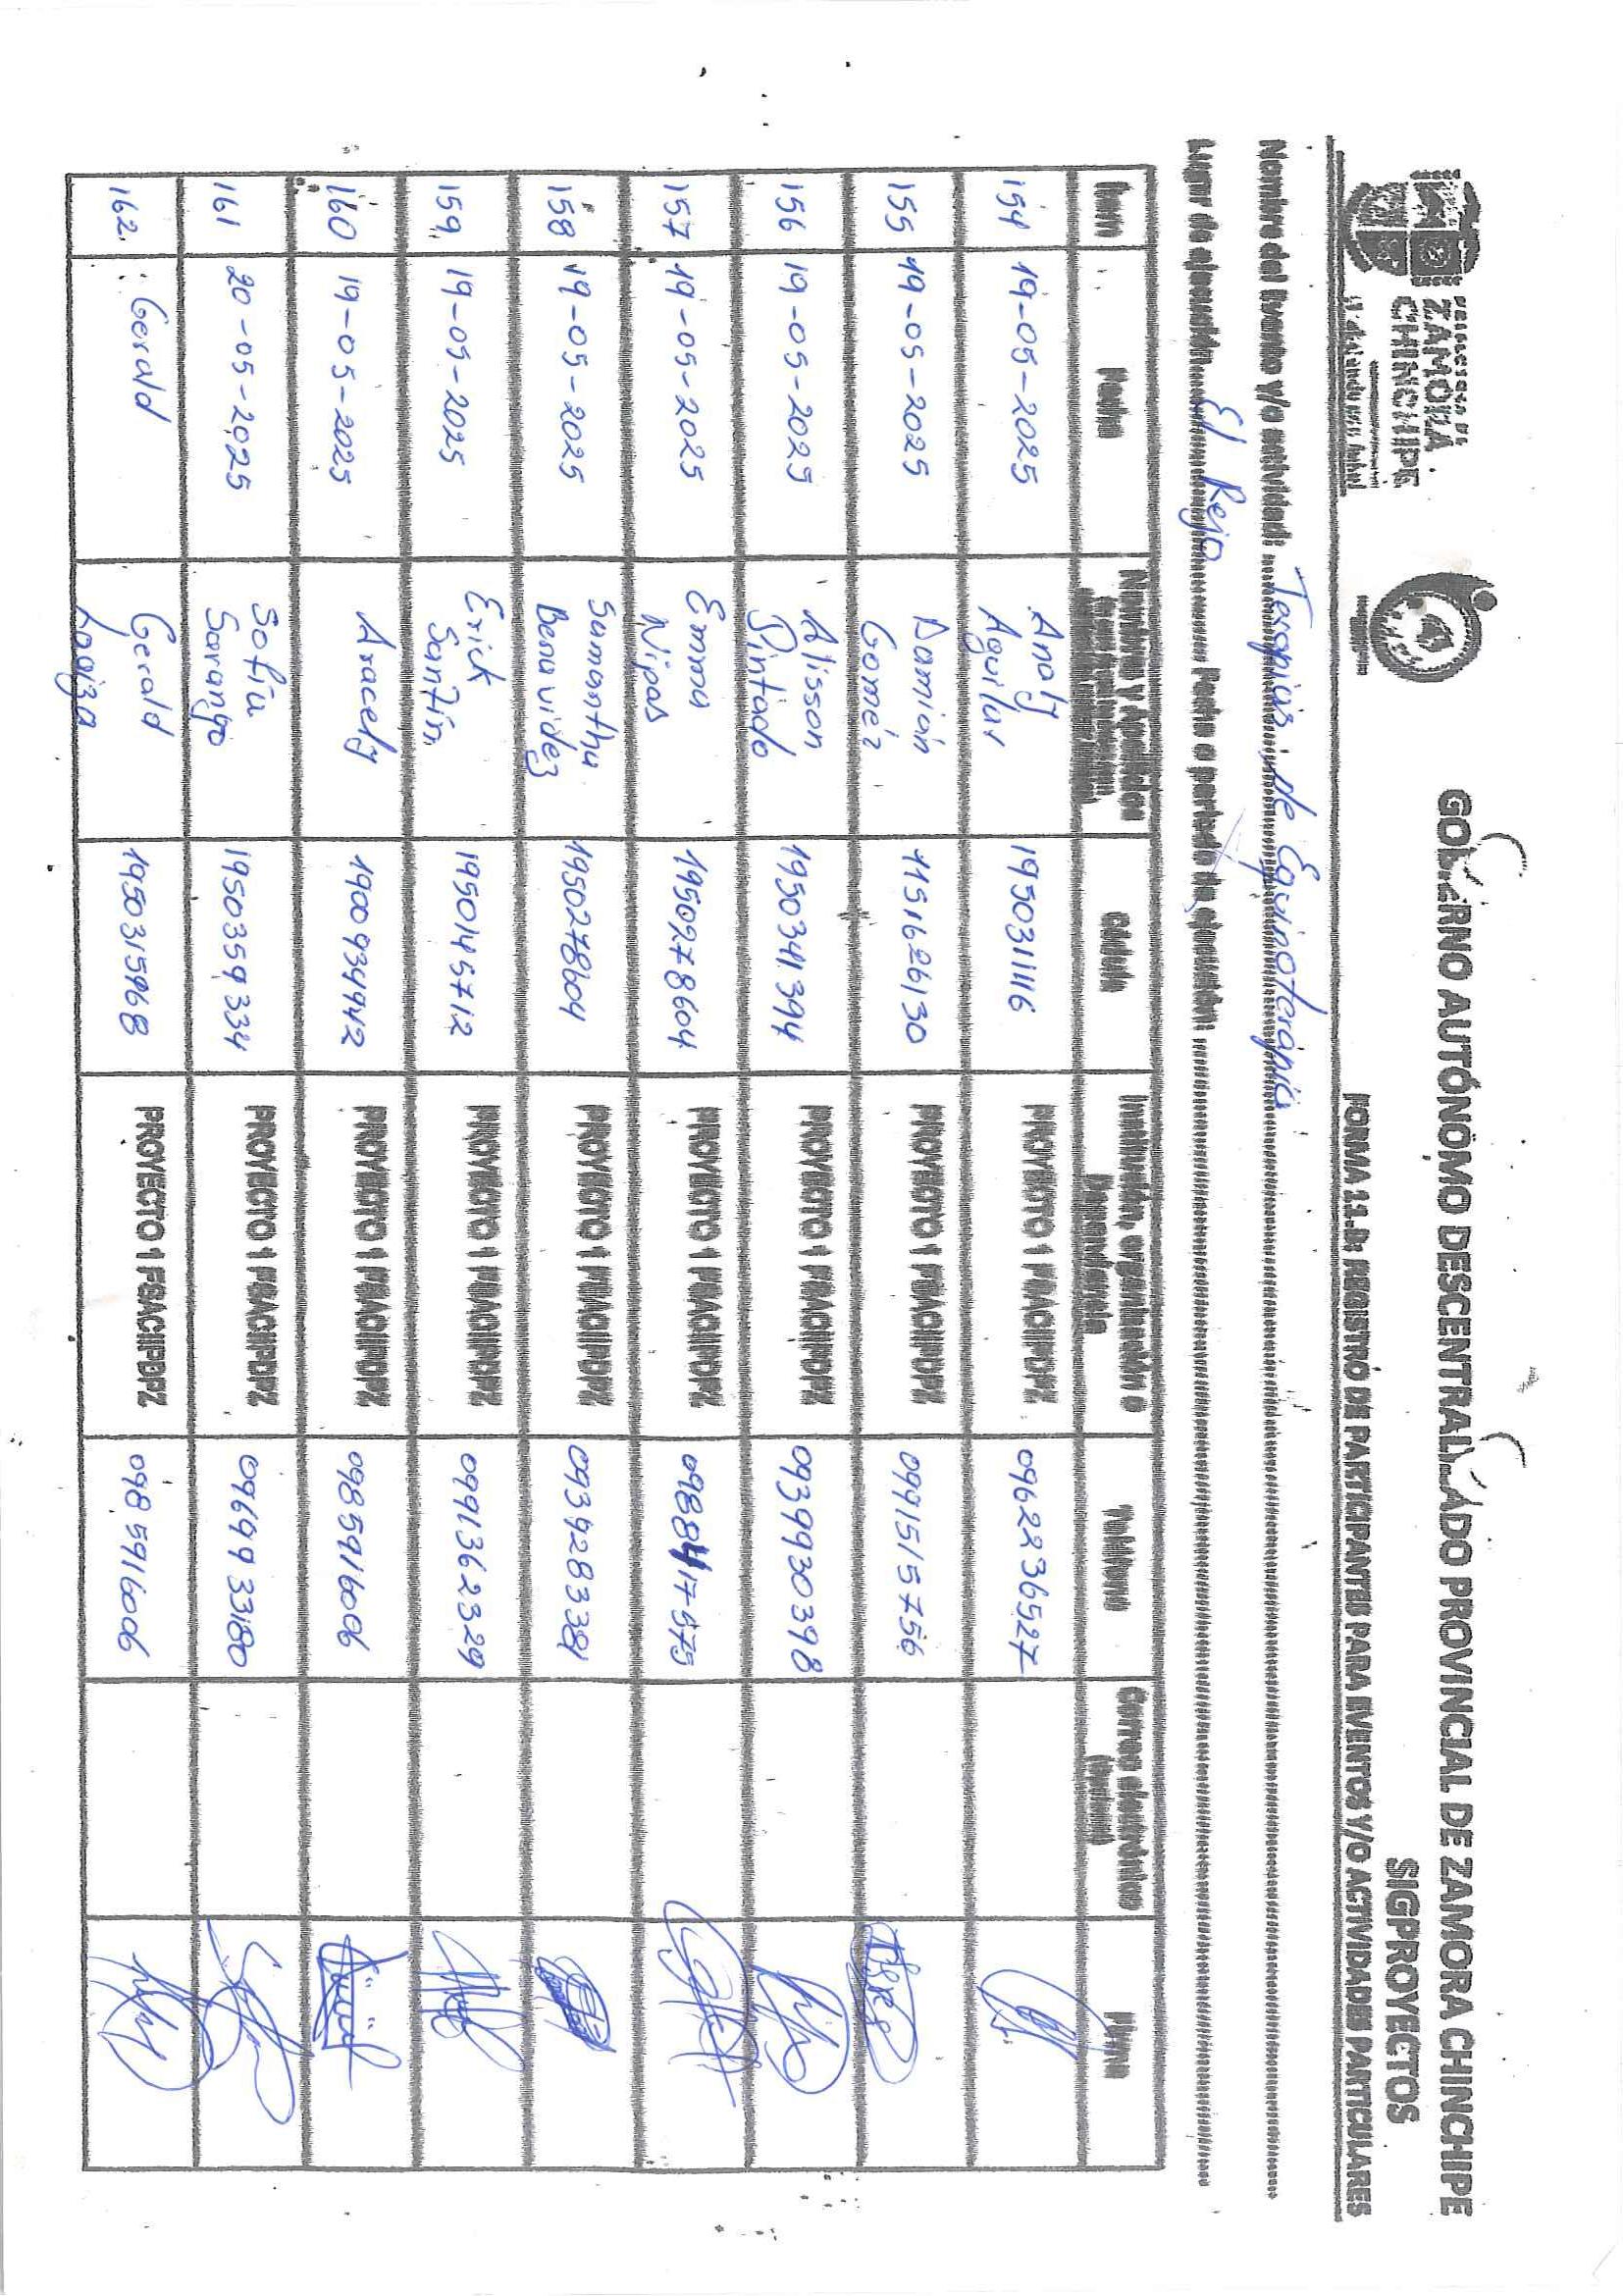 ZAMORA
CHINCHIPE
GOBIERNO AUTÓNOMO DESCENTRALIZADO PROVINCIAL DE ZAMORA CHINCHIPE
SIGPROYECTOS
FORMA 11.8: REGISTRO DE PARTICIPANTES PARA EVENTOS Y/O ACTIVIDADES PARTICULARES
Nombre del Evento y/o actividad: Terapias de Equinoterápia
Lugar de ejecución El Rejo Fecha o período de ejecución:
Item Fecha Nombres y Apellidos cédula Institución, organización o Dependencia Teléfono Correo electrónico Firma
154 19-05-2025 Anoly Aguilar 1950311116 PROYECTO 1 0962236527
155 19-05-2025 Damián Gomez 1151626130 PROYECTO 1 0991515756
156 19-05-2025 Alisson Pintado 1950341394 PROYECTO 1 0939930398
157 19-05-2025 Emma Nipas 1950278604 PROYECTO 1 0988417575
158 19-05-2025 Samantha Benavidez 1950278604 PROYECTO 1 0939283381
159 19-05-2025 Erick Santín 1950145712 PROYECTO 1 0991362329
160 19-05-2025 Aracely 1900934942 PROYECTO 1 0985916006
161 20-05-2025 Sofia Sarango 1950359334 PROYECTO 1 0969933180
162 Gerald Gerald Loaiza 1950315968 PROYECTO 1 0985916006